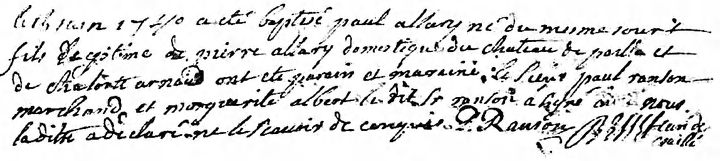 juin 1740 a eté baptisé paul allary né du mesme jour
fils legitime de pierre allary domestique du chateau de et
de arnaud ont eté parain et maraine le sieur paul ranson
marchand et marguerite albert le dit sr ranson a signé avec nous
laditte a declaré ne le scavoir de ce enquis P. Ranson